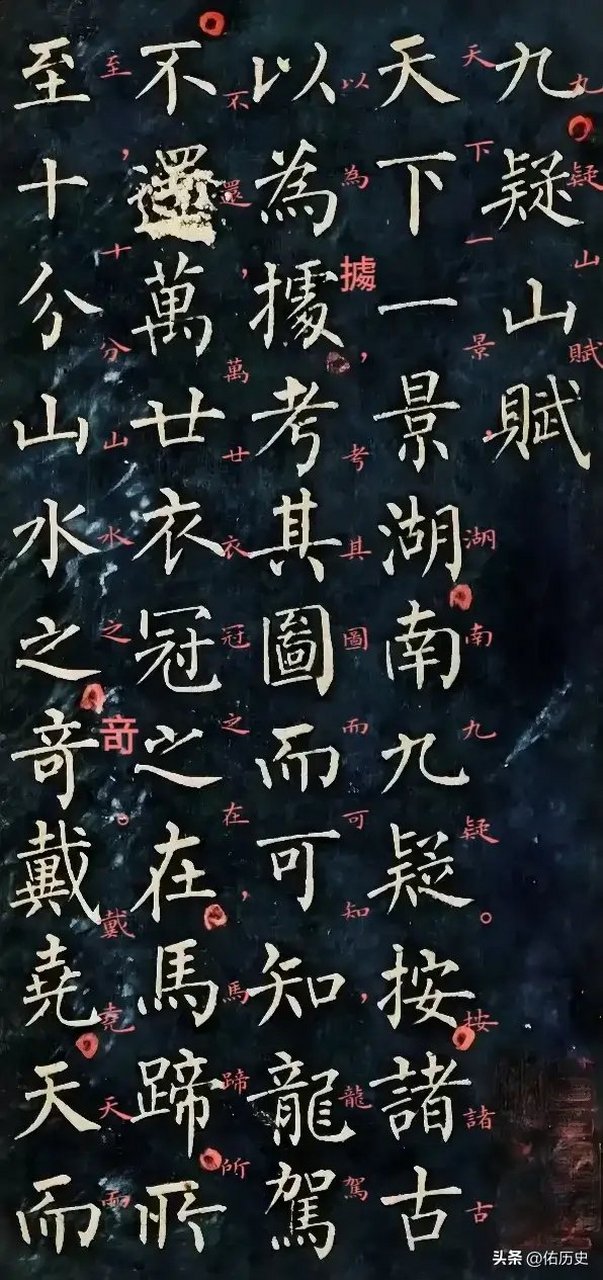 九疑山賦
九疑山賦
天下一景湖南九疑按諸古
天下一景，湖南九疑。按諸古
以為據考其圖而可知龍駕
以為據，考其圖而可知，龍駕
不還萬廿衣冠之在馬蹄所
不還，萬廿衣冠之在，馬蹄所
至十分山水之竒戴堯天而
至，十分山水之竒。戴堯天而
头条 @佑历史